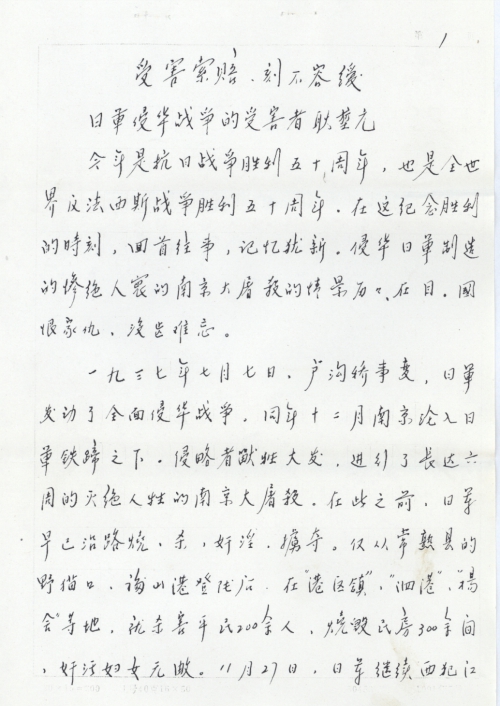 1
受害索赔、刻不容缓
日軍侵华战争的受害者耿莖元
今年是抗日战争胜利五十周年，也是全世
界反法西斯战争胜利五十周年。在这纪念胜利
的時刻，回首往事，记忆犹新。侵华日軍制造
的惨绝人寰的南京大屠殺的情景历々在目。國
恨家仇，沒齿难忘。
一九三七年七月七日，卢沟桥事变，日軍
发动了全面侵华战争，同年十二月南京沦入日
軍铁蹄之下。侵略者兽性大发，进行了長达六
周的灭绝人性的南京大屠殺。在此之前，日軍
早已沿路烧、杀、奸淫、掳夺。仅从常熟县的
野猫口、浒山港登陆后，在"港区镇"，"泗港"，"杨
会"等地，就杀害平民200余人，烧毁民房300余间
，奸污妇女无数。11月27日，日軍继续西犯江